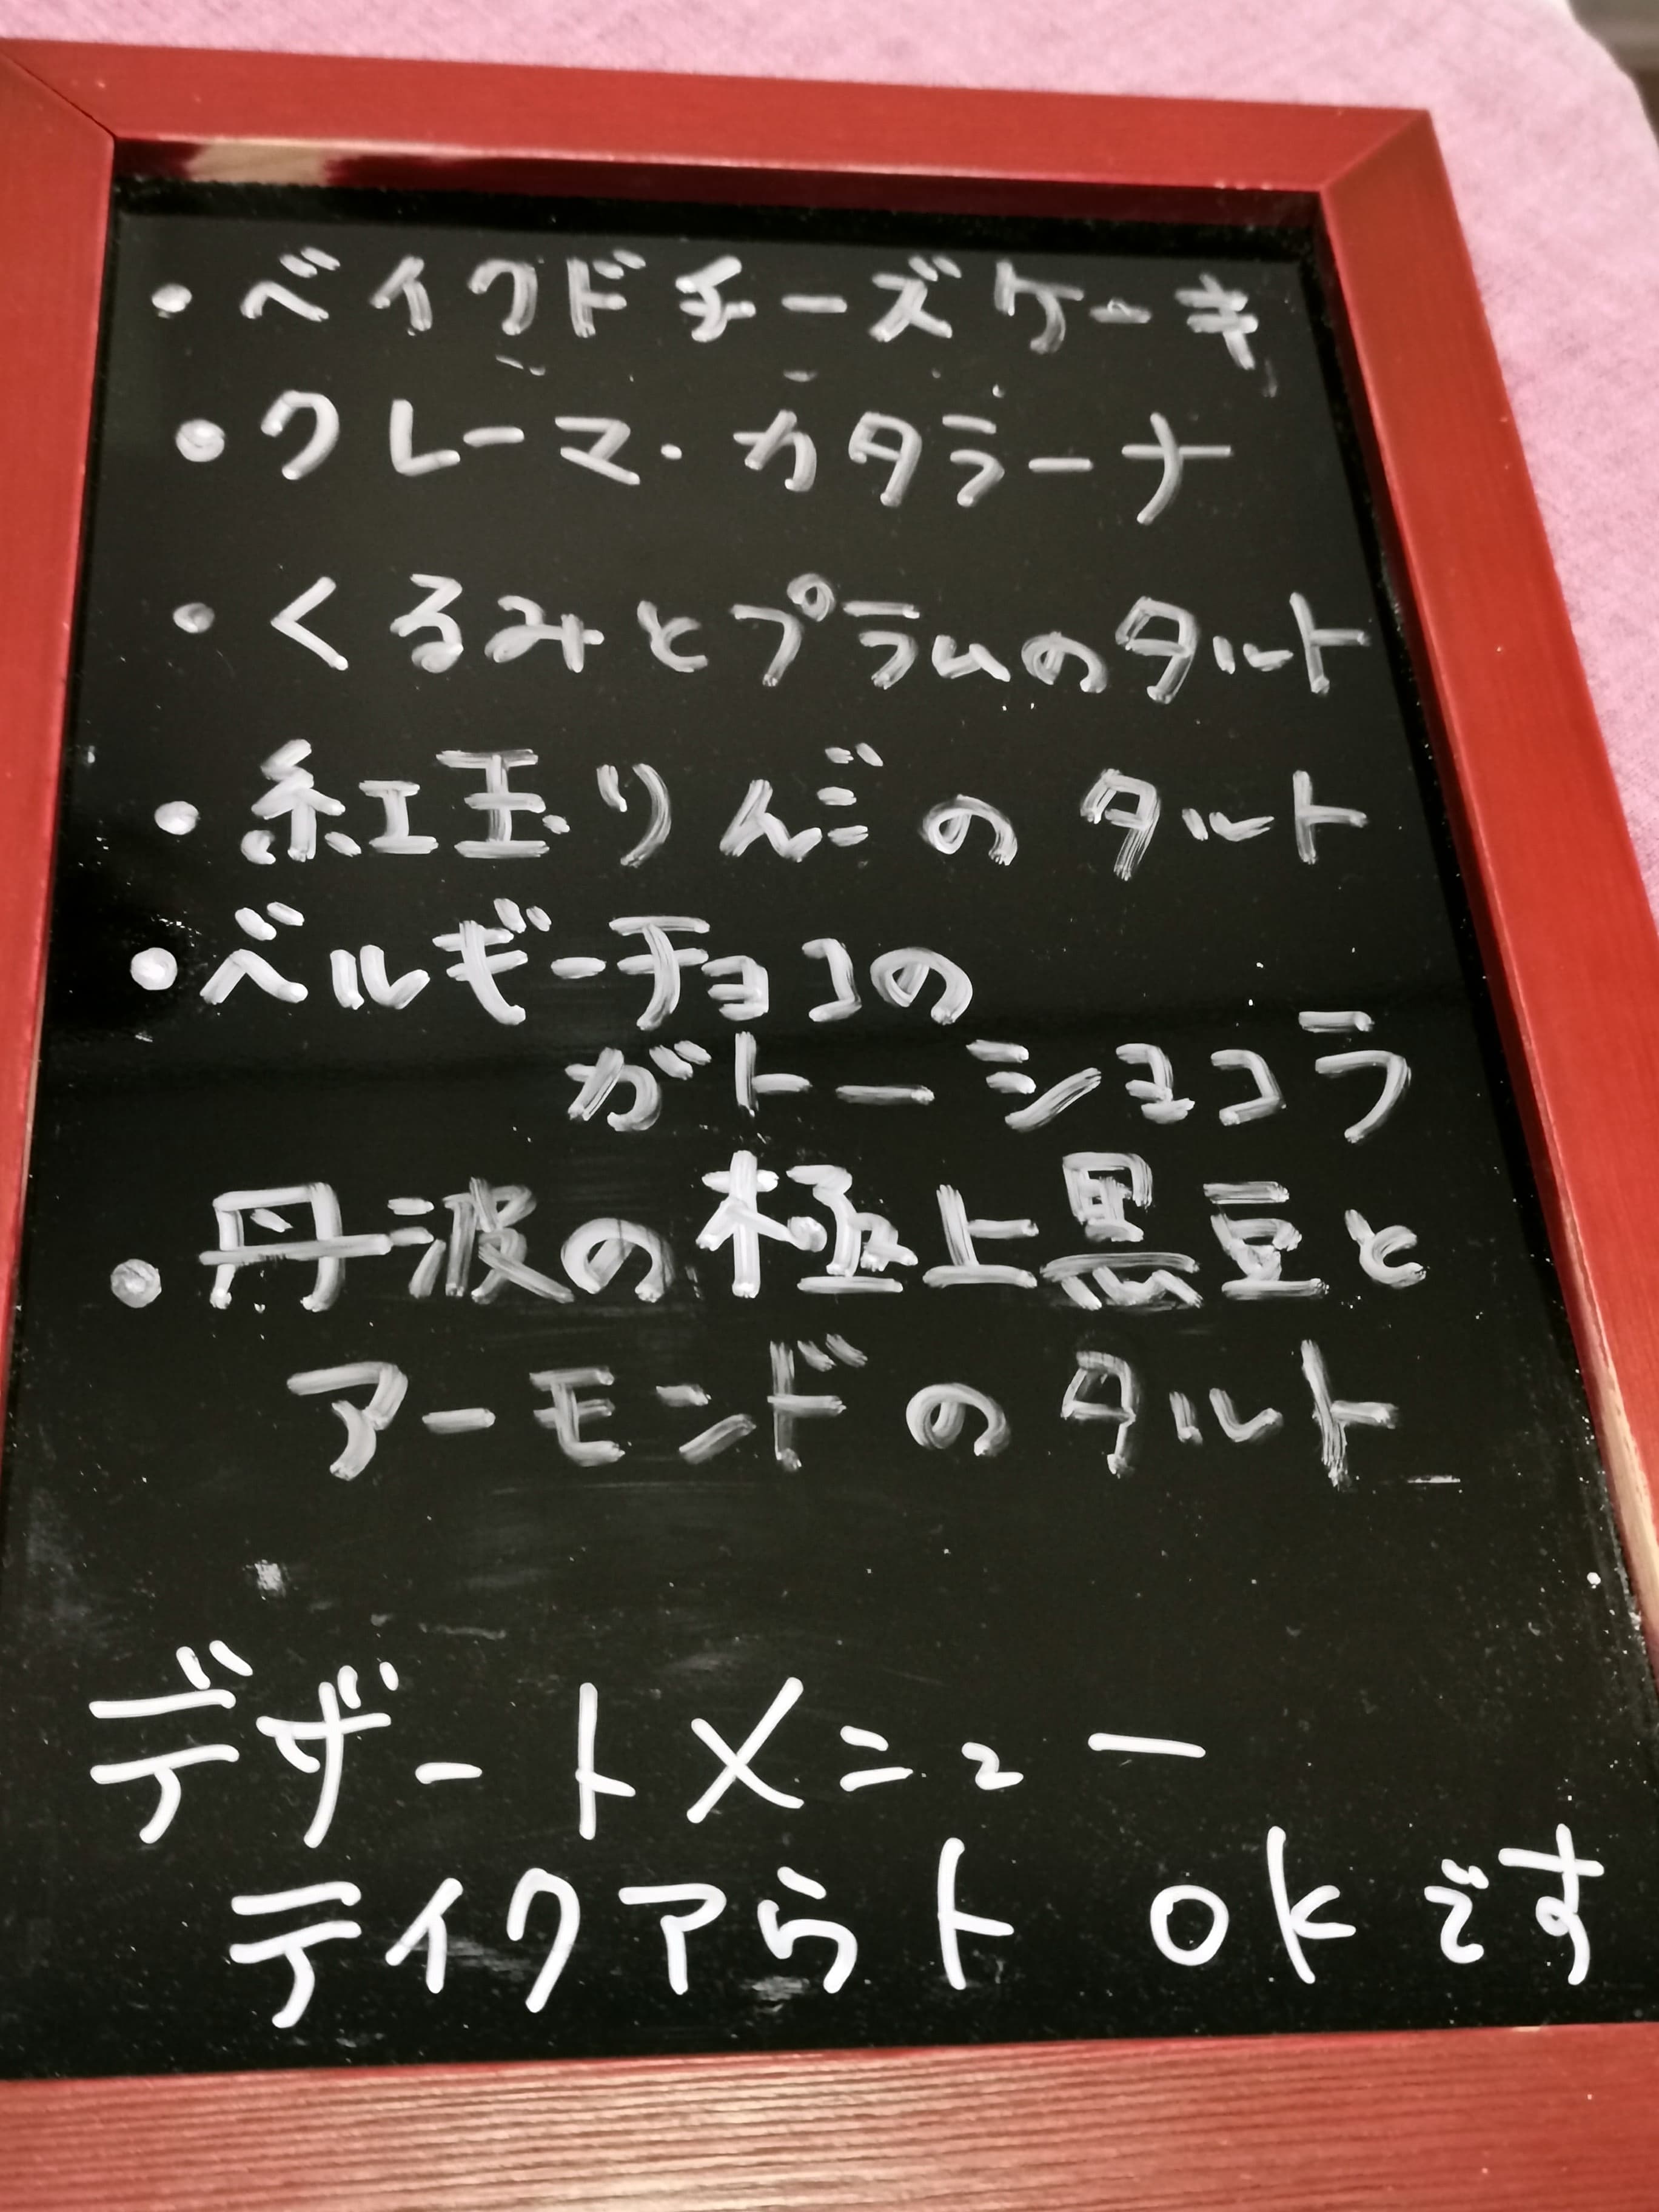 ・ベイクドチーズケーキ
・クレーマ・カタラーナ
・くるみとプラムのタルト
・紅玉りんごのタルト
・ベルギーチョコの
ガトーショコラ
・丹波の極上黒豆と
アーモンドのタルト
デザートメニュー
テイクアらト OKです